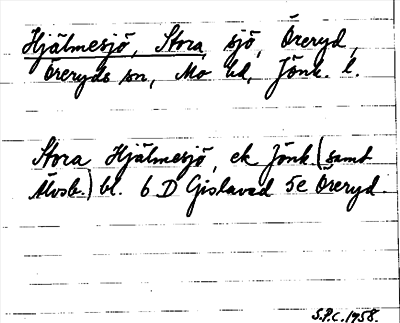 Hjälmesjö, Stora, sjö, Öreryd,
Öreryds sn, Mo hd, Jönk. l.
Stora Hjälmesjö, ek Jönk (samt
Älvsb.) bl. 6 D Gislaved 5e Öreryd.
S.P.C. 1958.